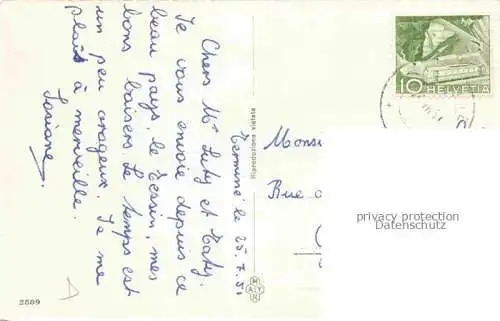 Terminé le 25.7.51
Chers Mr Luty et Taty.
Je vous envoie depuis ce
beau pays, le Tessin, mes
bons baisers. Le temps est
un peu orageux. Je me
plaîs à merveille.
Josiane.
Riproduzione vietata
MAYR
2889
10 HELVETIA
Monsi
Rue
privacy protection
Datenschutz